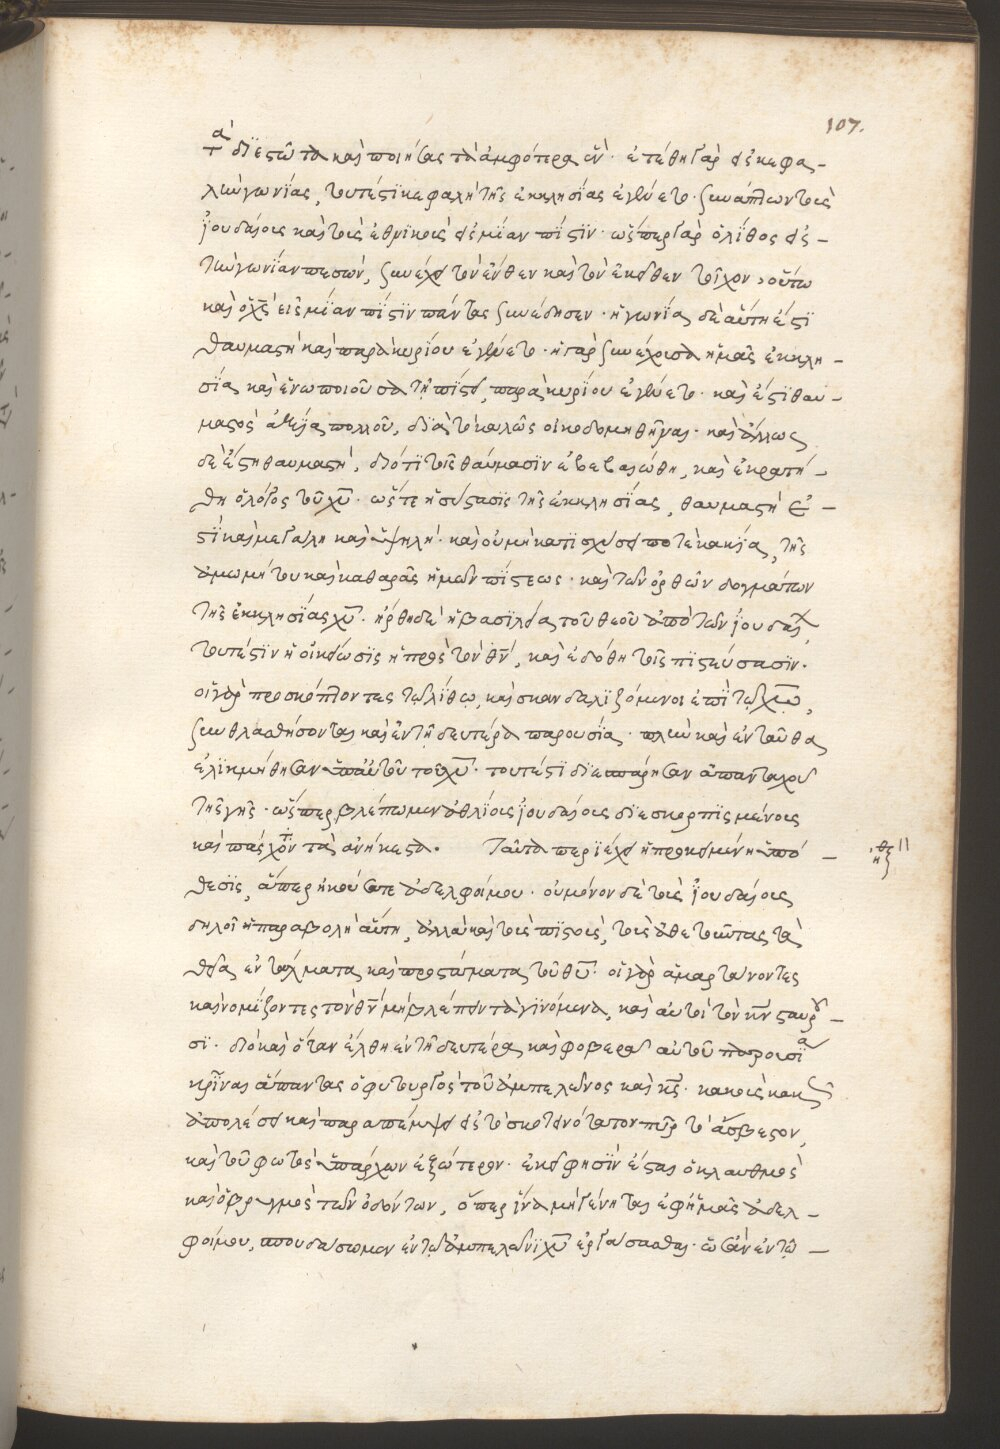 107.
τὰ διεστῶτα καὶ ποιήσας τὰ ἀμφότερα ἕν· ἐτέθη γὰρ εἰς κεφα-
λὴν γωνίας, τουτέστι κεφαλὴ τῆς ἐκκλησίας ἐγένετο· συνάπτων τοὺς
ἰουδαίους καὶ τοὺς ἐθνικοὺς εἰς μίαν πίστιν· ὥσπερ γὰρ ὁ λίθος εἰς
τὴν γωνίαν πεσών, συνέχει τὸν ἔνθεν καὶ τὸν ἐκεῖθεν τοῖχον, οὕτω
καὶ ὁ χς εἰς μίαν πίστιν πάντας συνέδησεν· ἡ γωνία δὲ αὕτη ἐστὶ
θαυμαστὴ καὶ παρὰ κυρίου ἐγένετο· ἡ γὰρ συνέχουσα ἡμᾶς ἐκκλη-
σία καὶ ἑνωποιοῦσα τῇ πίστει, παρὰ κυρίου ἐγένετο· καὶ ἔστι θαυ-
μαστὸς ἀξία πολλοῦ, διὰ τὸ καλῶς οἰκοδομηθῆναι· καὶ ἄλλως
δὲ ἔστη θαυμαστή, διότι τοῖς θαύμασιν ἐβεβαιώθη, καὶ ἐκρατή-
θη ὁ λόγος τοῦ χυ· ὥστε ἡ σύστασις τῆς ἐκκλησίας, θαυμαστὴ ἐ-
στὶ καὶ μεγάλη καὶ ὑψηλή· καὶ οὐ μὴ κατισχύσει ποτὲ κακία, τῆς
ἀμωμήτου καὶ καθαρᾶς ἡμῶν πίστεως· καὶ τῶν ὀρθῶν δογμάτων
τῆς ἐκκλησίας χυ· ἤρθη δὲ ἡ βασιλεία τοῦ θεοῦ ἀπὸ τῶν ἰουδαί
τουτέστιν ἡ οἰκείωσις ἡ πρὸς τὸν θν, καὶ ἐδόθη τοῖς πιστεύσασιν·
οἱ γὰρ προσκόπτοντες τῷ λίθῳ, καὶ σκανδαλιζόμενοι ἐπὶ τῷ χω,
συνθλασθήσονται καὶ ἐν τῇ δευτέρᾳ παρουσίᾳ· πλὴν καὶ ἐνταῦθα
ἐλικμήθησαν ὑπ' αὐτοῦ τοῦ χυ· τουτέστι διεσπάρησαν ἁπανταχοῦ
τῆς γῆς· ὥσπερ βλέπωμεν ἀθλίους ἰουδαίους διεσκορπισμένους
καὶ πάσχοντας τὰ ἀνήκεστα. Ταῦτα περιέχει ἡ προκειμένη ὑπό-
θεσις, ἅπερ ἠκούσατε ἀδελφοίμου· οὐ μόνον δὲ τοὺς ἰουδαίους
δηλοῖ ἡ παραβολὴ αὕτη, ἀλλὰ καὶ τοὺς πιστούς, τοὺς ἀθετοῦντας τὰ
θεῖα ἐντάλματα καὶ προστάγματα τοῦ θυ· οἱ γὰρ ἁμαρτάνοντες
καὶ νομίζοντες τὸν θν μὴ βλέπειν τὰ γινόμενα, καὶ αὐτοὶ τὸν κν σταυρου-
σι· διὸ καὶ ὅταν ἔλθῃ ἐν τῇ δευτέρᾳ καὶ φοβερᾷ αὐτοῦ παρουσία
κρῖναι ἅπαντας ὁ φυτουργὸς τοῦ ἀμπελῶνος καὶ κς· κακοὺς κακῶς
ἀπολέσει καὶ παραπέμψει εἰς τὸ σκοτεινότατον πῦρ τὸ ἄσβεστον,
καὶ τοῦ φωτὸς ὑπάρχων ἐξώτερον· ἐκεῖ φησὶν ἔσται ὁ κλαυθμὸς
καὶ ὁ βρυγμὸς τῶν ὀδόντων, ὅπερ ἵνα μὴ γένηται ἐφ' ἡμᾶς ἀδελ-
φοίμου, σπουδάσωμεν ἐν τῷ ἀμπελῶνι χυ ἐργάσασθαι· ὡσὰν ἐν τῷ